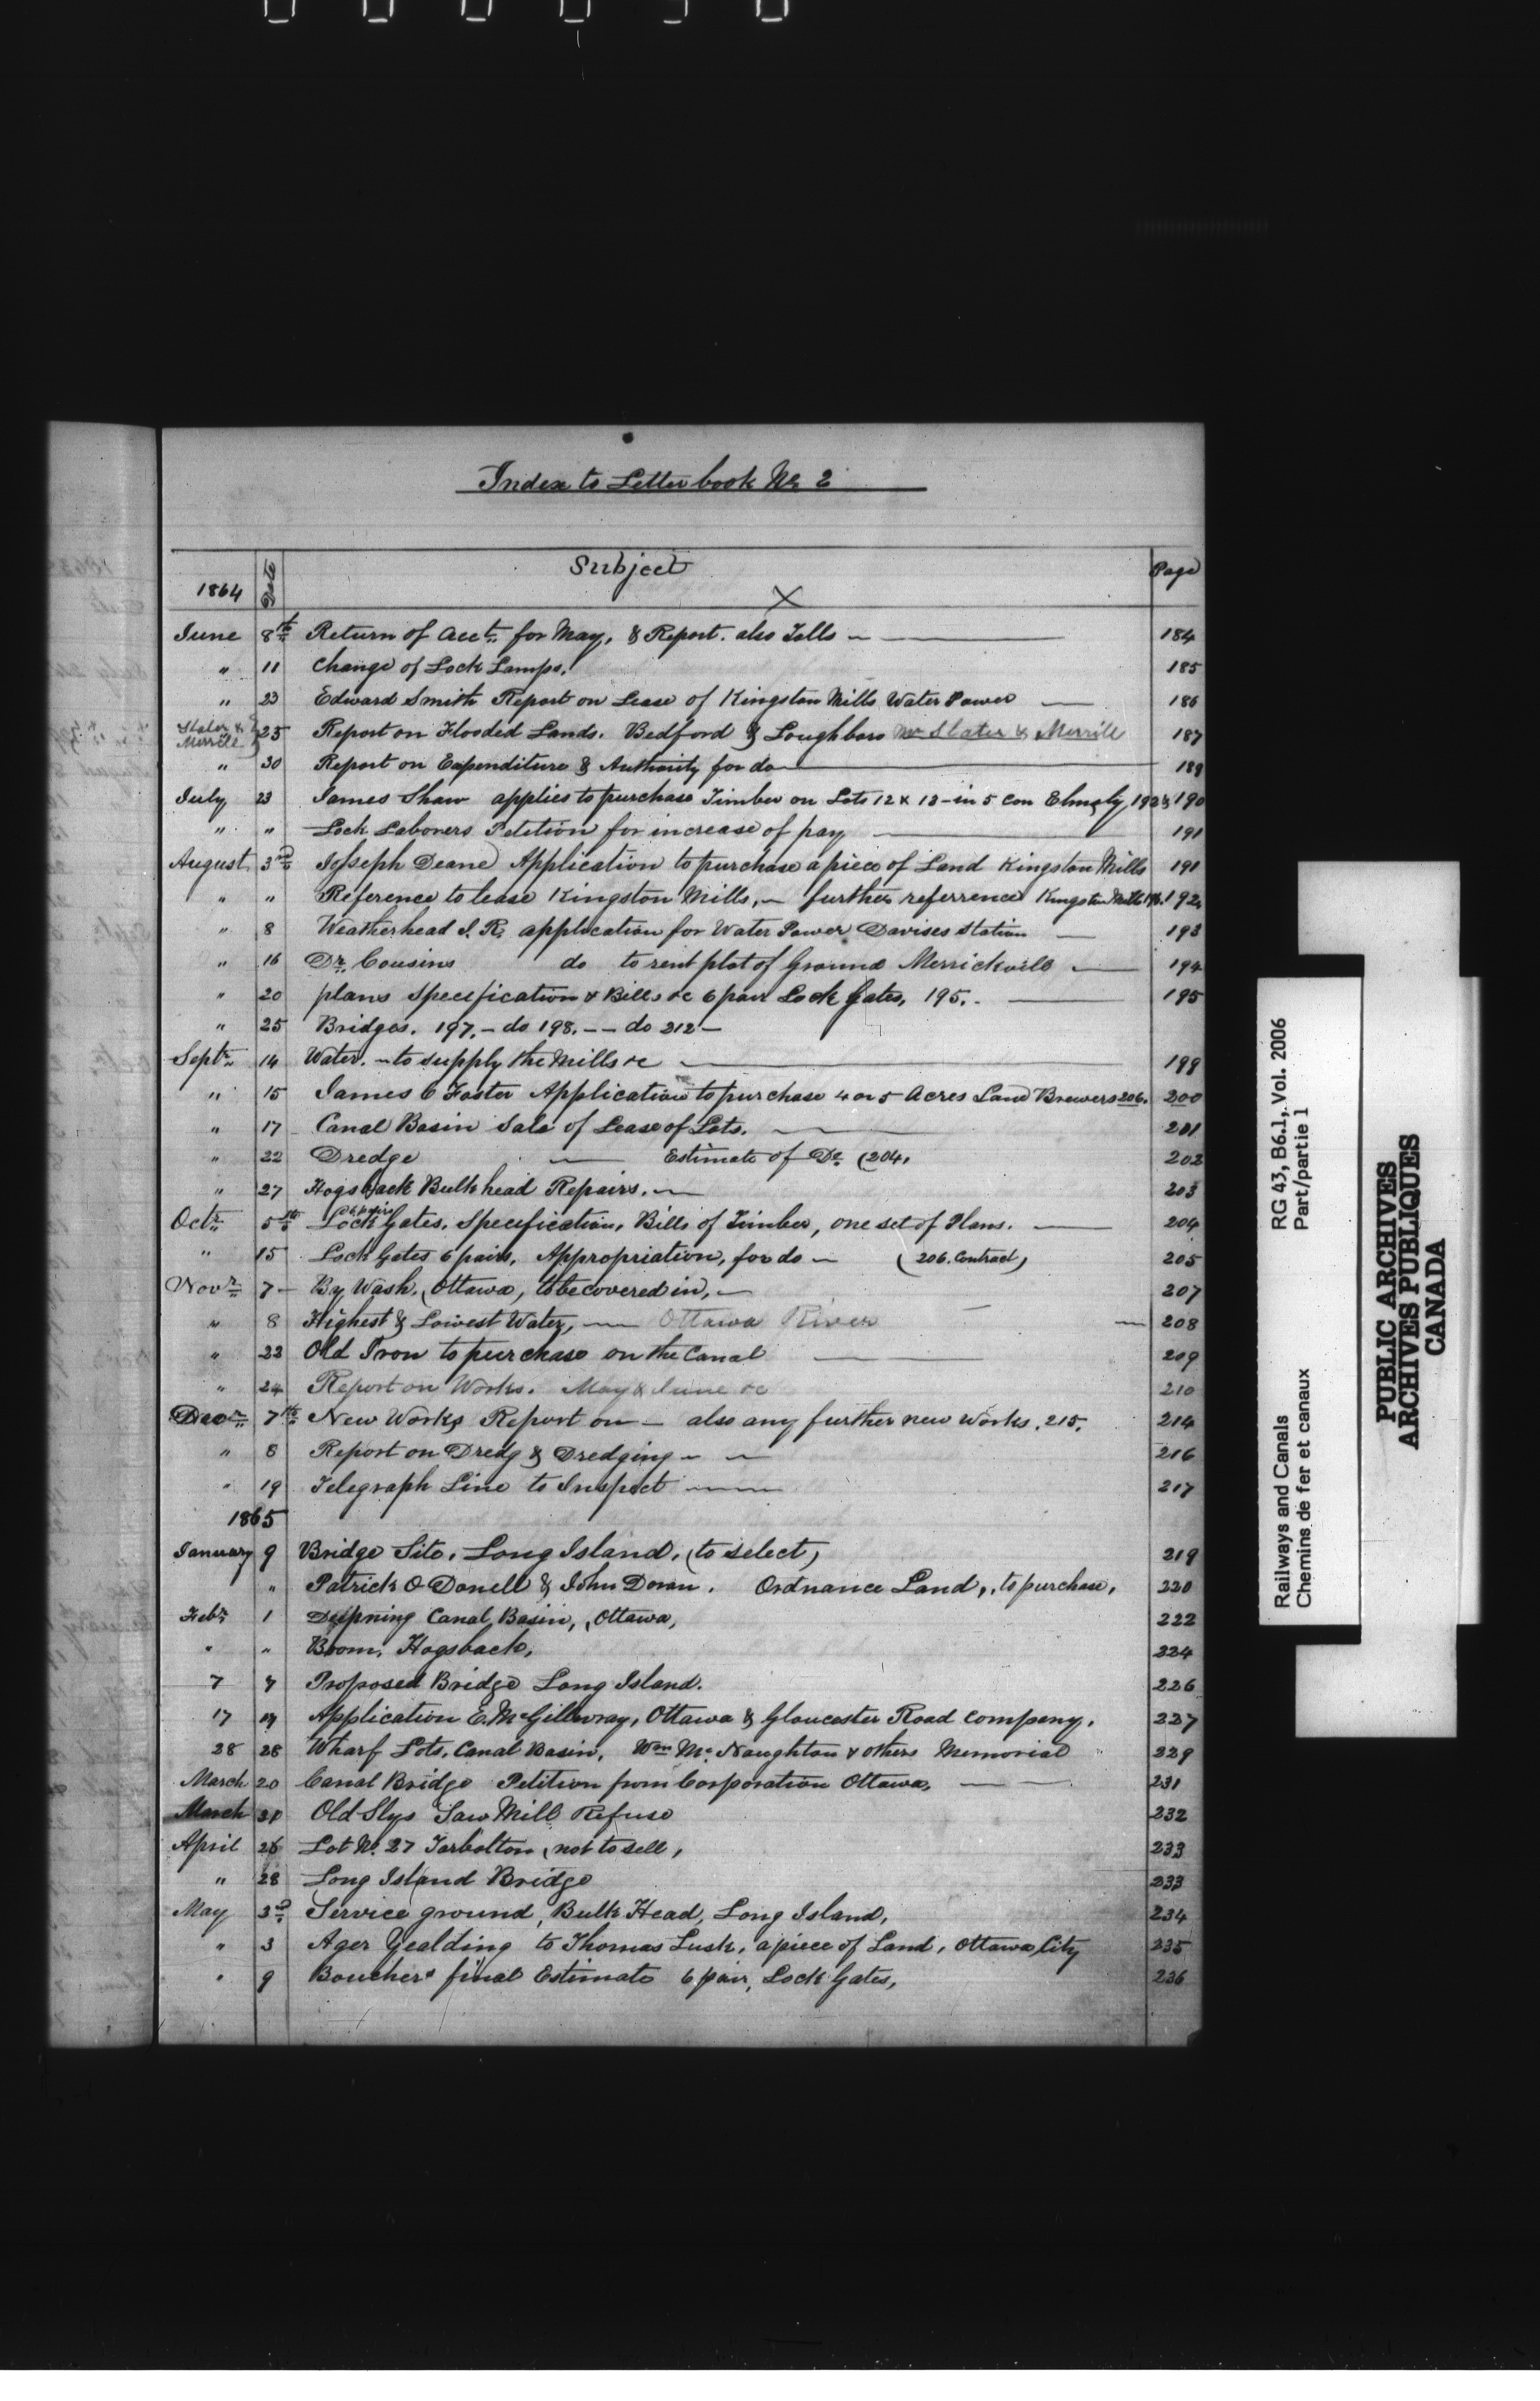 Index to Letterbook No 2
1864 Date Subject Page
X
June 8th Return of Acct. for May, & Report. also Tolls 184
" 11 Change of Lock Lamps. 185
" 23 Edward Smith Report on Lease of Kingston Mills Water Power 186
Slater & Merrill 25 Report on Flooded Lands. Bedford & Loughboro Mr Slater & Merrill 187
" 30 Report on Expenditure & Authority for do 189
July 23 James Shaw applies to purchase Timber on Lots 12 & 13 - in 5 Con Elmsly, 192 & 190
" " Lock Laborers Petition for increase of pay 191
August 3rd Joseph Deane Application to purchase a piece of Land Kingston Mills 191
" " Reference to lease Kingston Mills, further referrence Kingston Mills 196. 192
" 8 Weatherhead I. R. application for Water Power Davises Station 193
" 16 Dr. Cousins do to rent plot of Ground Merrickvill 194
" 20 plans Specification & Bills &c 6 pair Lock Gates, 195. 195
" 25 Bridges. 197. - do 198. - - do 212 -
Septr 14 Water. to supply the Mills &c 199
" 15 James C Foster Application to purchase 4 or 5 Acres Land Brewers 206. 200
" 17 Canal Basin Sale of Lease of Lots. 201
" 22 Dredge Estimate of Do (204, 202
" 27 Hogsback Bulkhead Repairs. 203
Octr 5th Lock 6 pairs Gates, Specification, Bills of Timber, one set of Plans. 204
" 15 Lock Gates 6 pairs, Appropriation, for do (206. Contract) 205
Novr 7 By Wash, (Ottawa, to be covered in, 207
" 8 Highest & Lowest Water, Ottawa River 208
" 22 Old Iron to purchase on the Canal 209
" 24 Report on Works. May & June &c 210
Decr 7th New Works Report on - also any further new works. 215. 214
" 8 Report on Dredg & Dredging 216
" 19 Telegraph Line to Inspect 217
1865
January 9 Bridge Site, Long Island, (to select) 219
" Patrick O Donell & John Doran. Ordnance Land, to purchase, 220
Febr 1 Deepning Canal Basin, (Ottawa, 222
" " Boom, Hogsback, 224
7 7 Proposed Bridge Long Island. 226
17 17 Application E. McGillivray, Ottawa & Gloucester Road Company, 227
28 28 Wharf Lots, Canal Basin, Wm McNaughton & others Memorial 229
March 20 Canal Bridge Petition from Corporation Ottawa, 231
March 31 Old Slys Saw Mill Refuse 232
April 26 Lot No. 27 Torbolton, not to sell, 233
" 28 Long Island Bridge 233
May 3d Service ground, Bulk Head, Long Island, 234
" 3 Ager Yealding to Thomas Lusk, a piece of Land, Ottawa City 235
" 9 Bouchers final Estimate 6 pair, Lock Gates, 236
Railways and Canals
Chemins de fer et canaux
RG 43, B6.1, Vol. 2006
Part/partie 1
PUBLIC ARCHIVES
ARCHIVES PUBLIQUES
CANADA